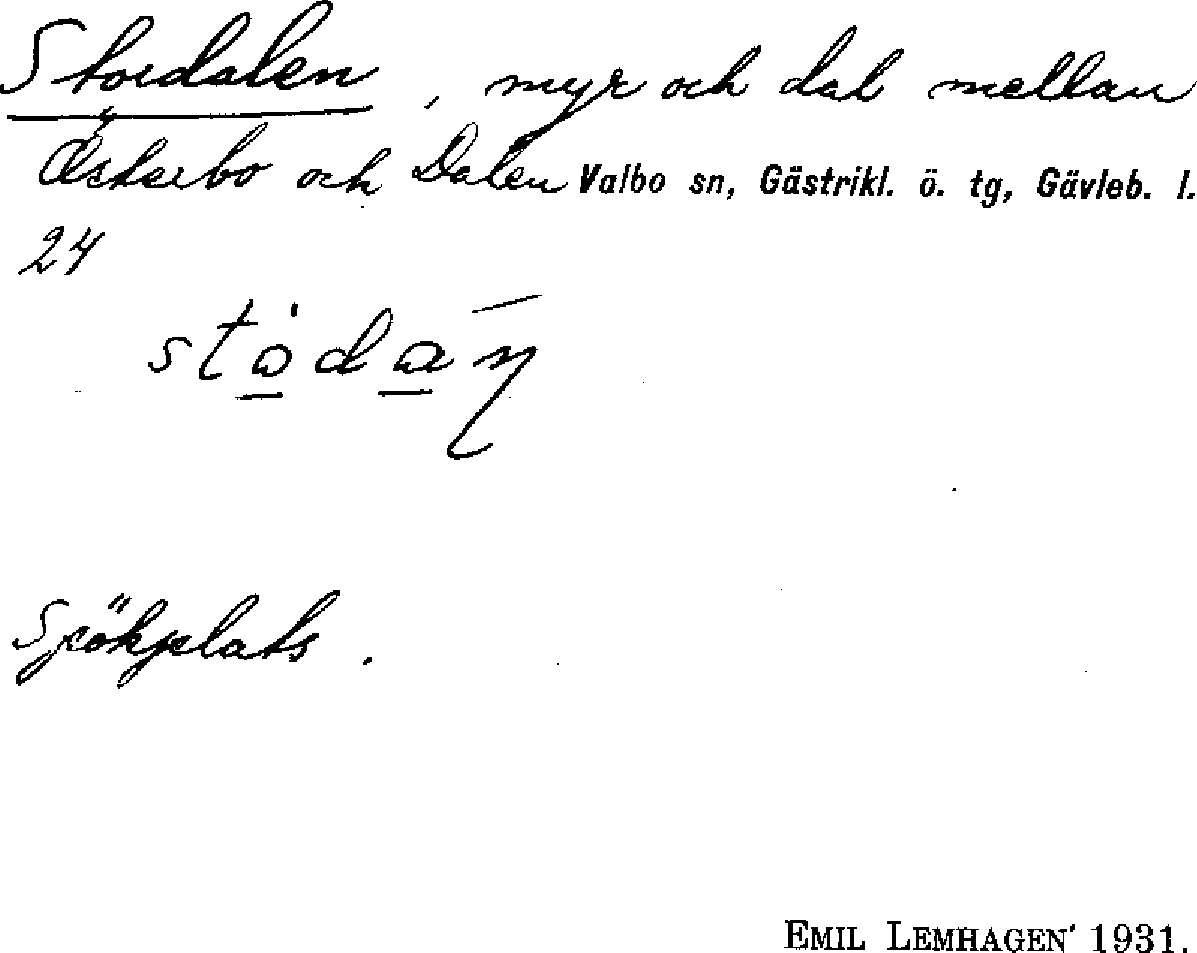 Stordalen, myr och dal mellan
Österbo och Dalen Valbo sn, Gästrikl. ö. tg, Gävleb. l.
24
Spökplats.
EMIL LEMHAGEN 1931.